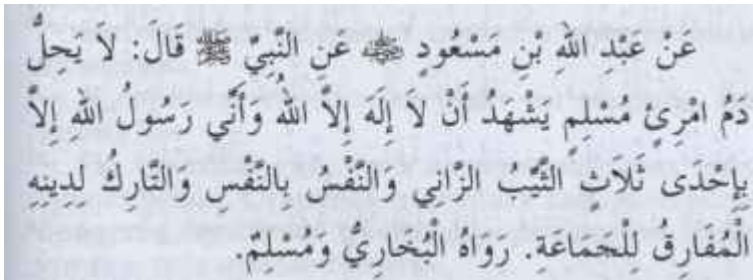 عَنْ عَبْدِ اللهِ بْنِ مَسْعُودٍ ﵁ عَنِ النَّبِيِّ ﷺ قَالَ: لاَ يَحِلُّ
دَمُ امْرِئٍ مُسْلِمٍ يَشْهَدُ أَنْ لاَ إِلَهَ إِلاَّ اللهُ وَأَنِّي رَسُولُ اللهِ إِلاَّ
بِإِحْدَى ثَلاَثٍ الثَّيِّبُ الزَّانِي وَالنَّفْسُ بِالنَّفْسِ وَالتَّارِكُ لِدِينِهِ
الْمُفَارِقُ لِلْجَمَاعَة. رَوَاهُ الْبُخَارِيُّ وَمُسْلِمٌ.